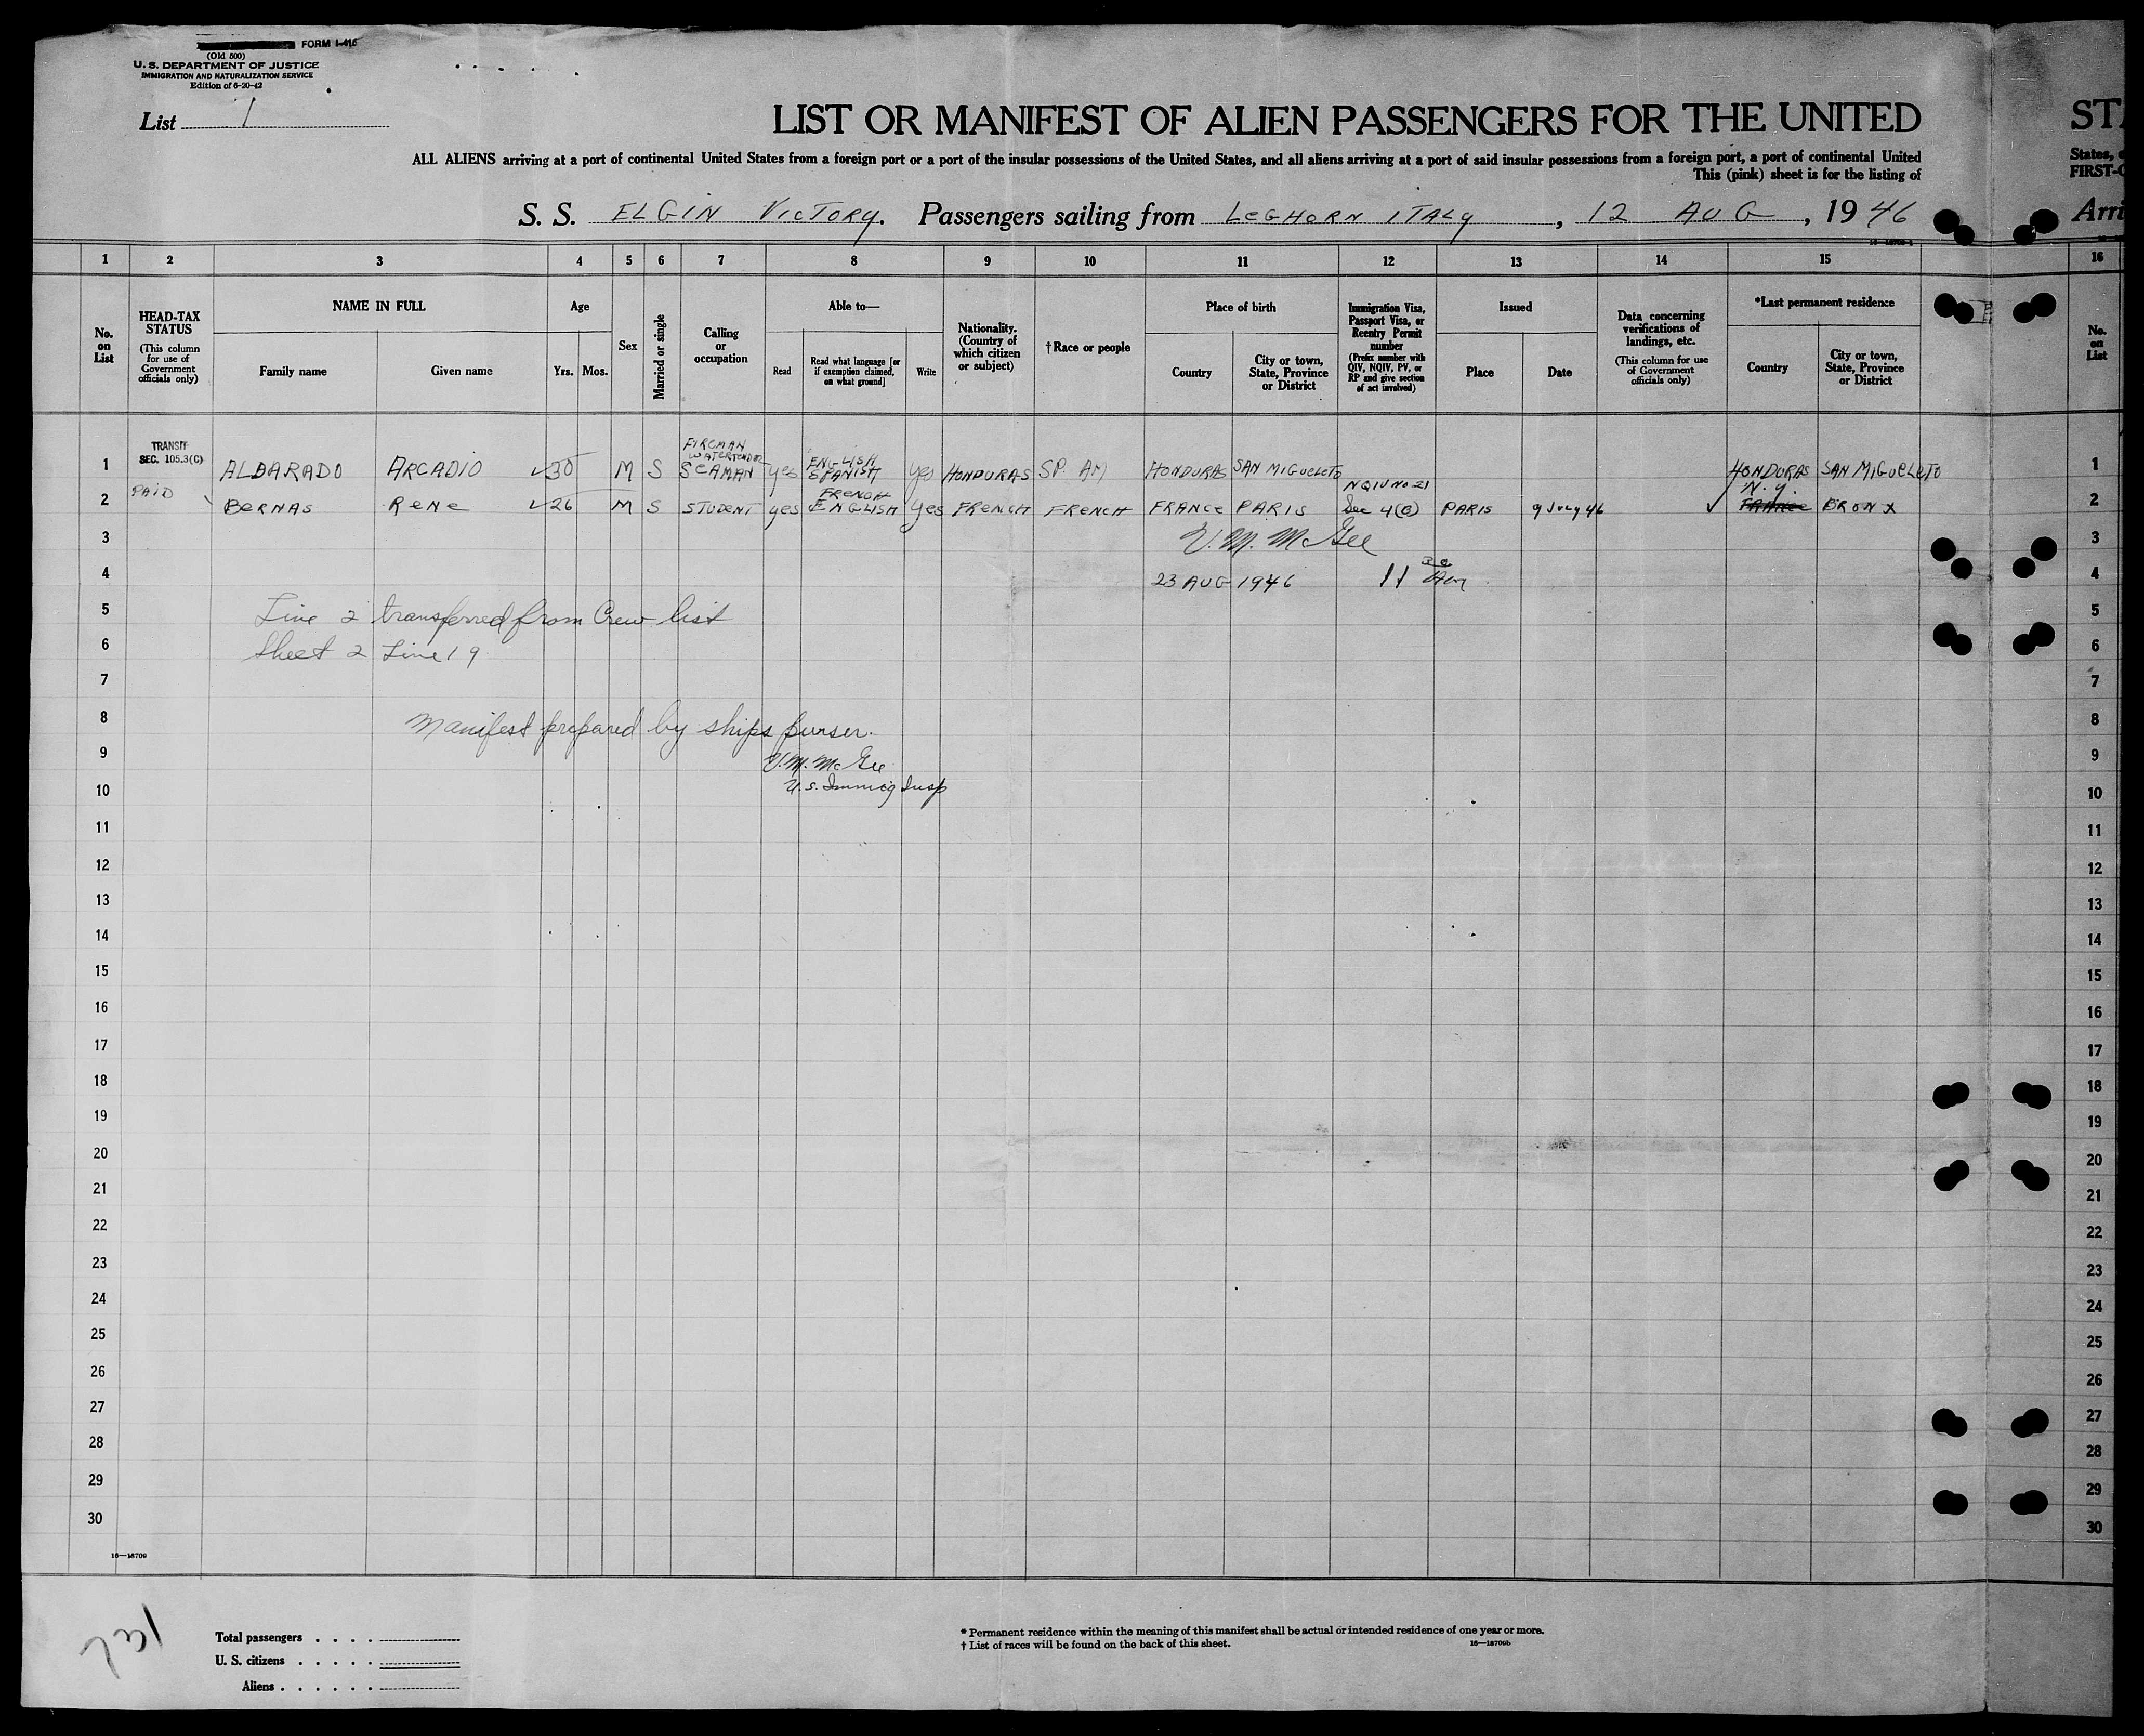 FORM I-415
(Old 500)
U. S. DEPARTMENT OF JUSTICE
IMMIGRATION AND NATURALIZATION SERVICE
Edition of 6-20-42
List 1
LIST OR MANIFEST OF ALIEN PASSENGERS FOR THE UNITED
STA
ALL ALIENS arriving at a port of continental United States from a foreign port or a port of the insular possessions of the United States, and all aliens arriving at a port of said insular possessions from a foreign port, a port of continental United
States,
This (pink) sheet is for the listing of
FIRST-C
S. S. ELGIN VICTORY. Passengers sailing from LEGHORN ITALY, 12 AUG, 1946
Arri
16—18709-1
1 2 3 4 5 6 7 8 9 10 11 12 13 14 15 16
No. on List
HEAD-TAX STATUS
(This column for use of Government officials only)
NAME IN FULL
Family name
Given name
Age
Yrs.
Mos.
Sex
Married or single
Calling or occupation
Able to—
Read
Read what language [or if exemption claimed, on what ground]
Write
Nationality. (Country of which citizen or subject)
†Race or people
Place of birth
Country
City or town, State, Province or District
Immigration Visa, Passport Visa, or Reentry Permit number
(Prefix number with QIV, NQIV, PV, or RP and give section of act involved)
Issued
Place
Date
Data concerning verifications of landings, etc.
(This column for use of Government officials only)
*Last permanent residence
Country
City or town, State, Province or District
No. on List
1 TRANSIT SEC. 105.3(C) ALBARADO ARCADIO ✓30 M S FIREMAN WATERTENDER SEAMAN yes ENGLISH SPANISH yes HONDURAS SP. AM HONDURAS SAN MIGUELETO HONDURAS SAN MIGUELETO 1
2 PAID BERNAS RENE ✓26 M S STUDENT yes FRENCH ENGLISH yes FRENCH FRENCH FRANCE PARIS NQIV No 21 Sec 4(e) PARIS 9 July 46 ✓ N.Y. FRANCE BRONX 2
3 V. M. McGee 3
4 23 AUG 1946 11 30 AM 4
5 Line 2 transferred from Crew list 5
6 Sheet 2 Line 19 6
7 7
8 Manifest prepared by ships purser. 8
9 V. M. McGee 9
10 U. S. Immig Insp 10
11 11
12 12
13 13
14 14
15 15
16 16
17 17
18 18
19 19
20 20
21 21
22 22
23 23
24 24
25 25
26 26
27 27
28 28
29 29
30 30
16—18709
Total passengers . . . .
U. S. citizens . . . . .
Aliens . . . . . .
* Permanent residence within the meaning of this manifest shall be actual or intended residence of one year or more.
† List of races will be found on the back of this sheet.
16—18709b